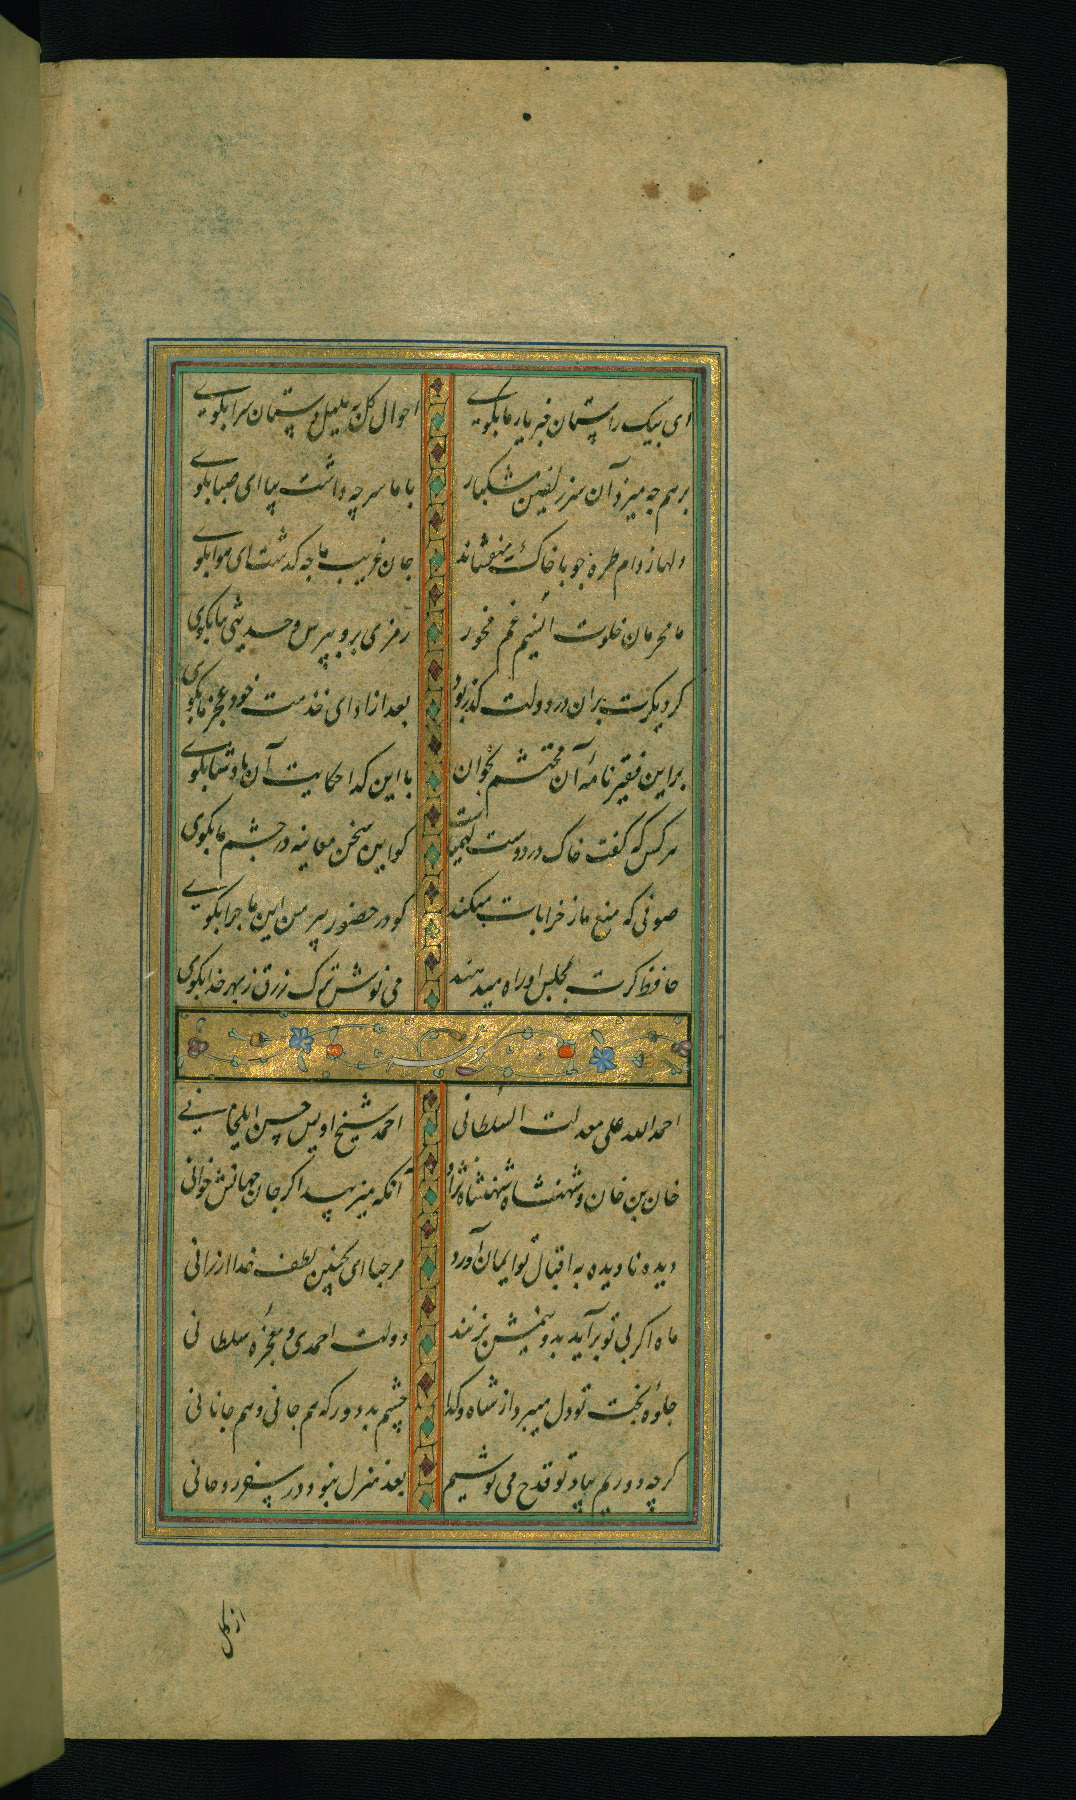 ای پیک راستان خبر یار ما بگوی احوال گل به بلبل دستان سرا بگوی
برهم چه میزد آن سر زلفین مشکبار با ما سر چه داشت بیا ای صبا بگوی
دلها ز دام طره چو با خاک میفشاند جان غریب ما چه گذشت ای هوا بگوی
ما محرمان خلوت انسیم غم مخور رمزی برو بپرس و حدیثی بیا بگوی
کر دیکرت بران در دولت کذر بود بعد از ادای خدمت خود عجز ما بگوی
بر این فقیر نامهٔ آن محتشم بخوان با این کدا حکایت آن پادشا بگوی
هر کس که گفت خاک در دوست کیمیاست کو این سخن معاینه در چشم ما بگوی
صوفی که منع ما ز خرابات میکند کو در حضور پیر من این ماجرا بگوی
حافظ کرت بمجلس او راه میدهند می نوش ترک زرق ز بهر خدا بگوی
احمد الله علی معدلت السلطانی احمد شیخ اویس حسن ایلخانی
خان بن خان و شهنشاه شهنشاه نژاد آنکه میزیبد اگر جان جهانش خوانی
دیده نادیده به اقبال تو ایمان آورد مرحبا ای بچنین لطف خدا ارزانی
ماه اگر بی تو برآید بدو نیمش بزنند دولت احمدی و معجزهٔ سلطانی
جلوهٔ بخت تو دل میبرد از شاه و گدا چشم بد دور که هم جانی و هم جانانی
گرچه دوریم بیاد تو قدح می نوشیم بعد منزل نبود در سفر روحانی
از گل